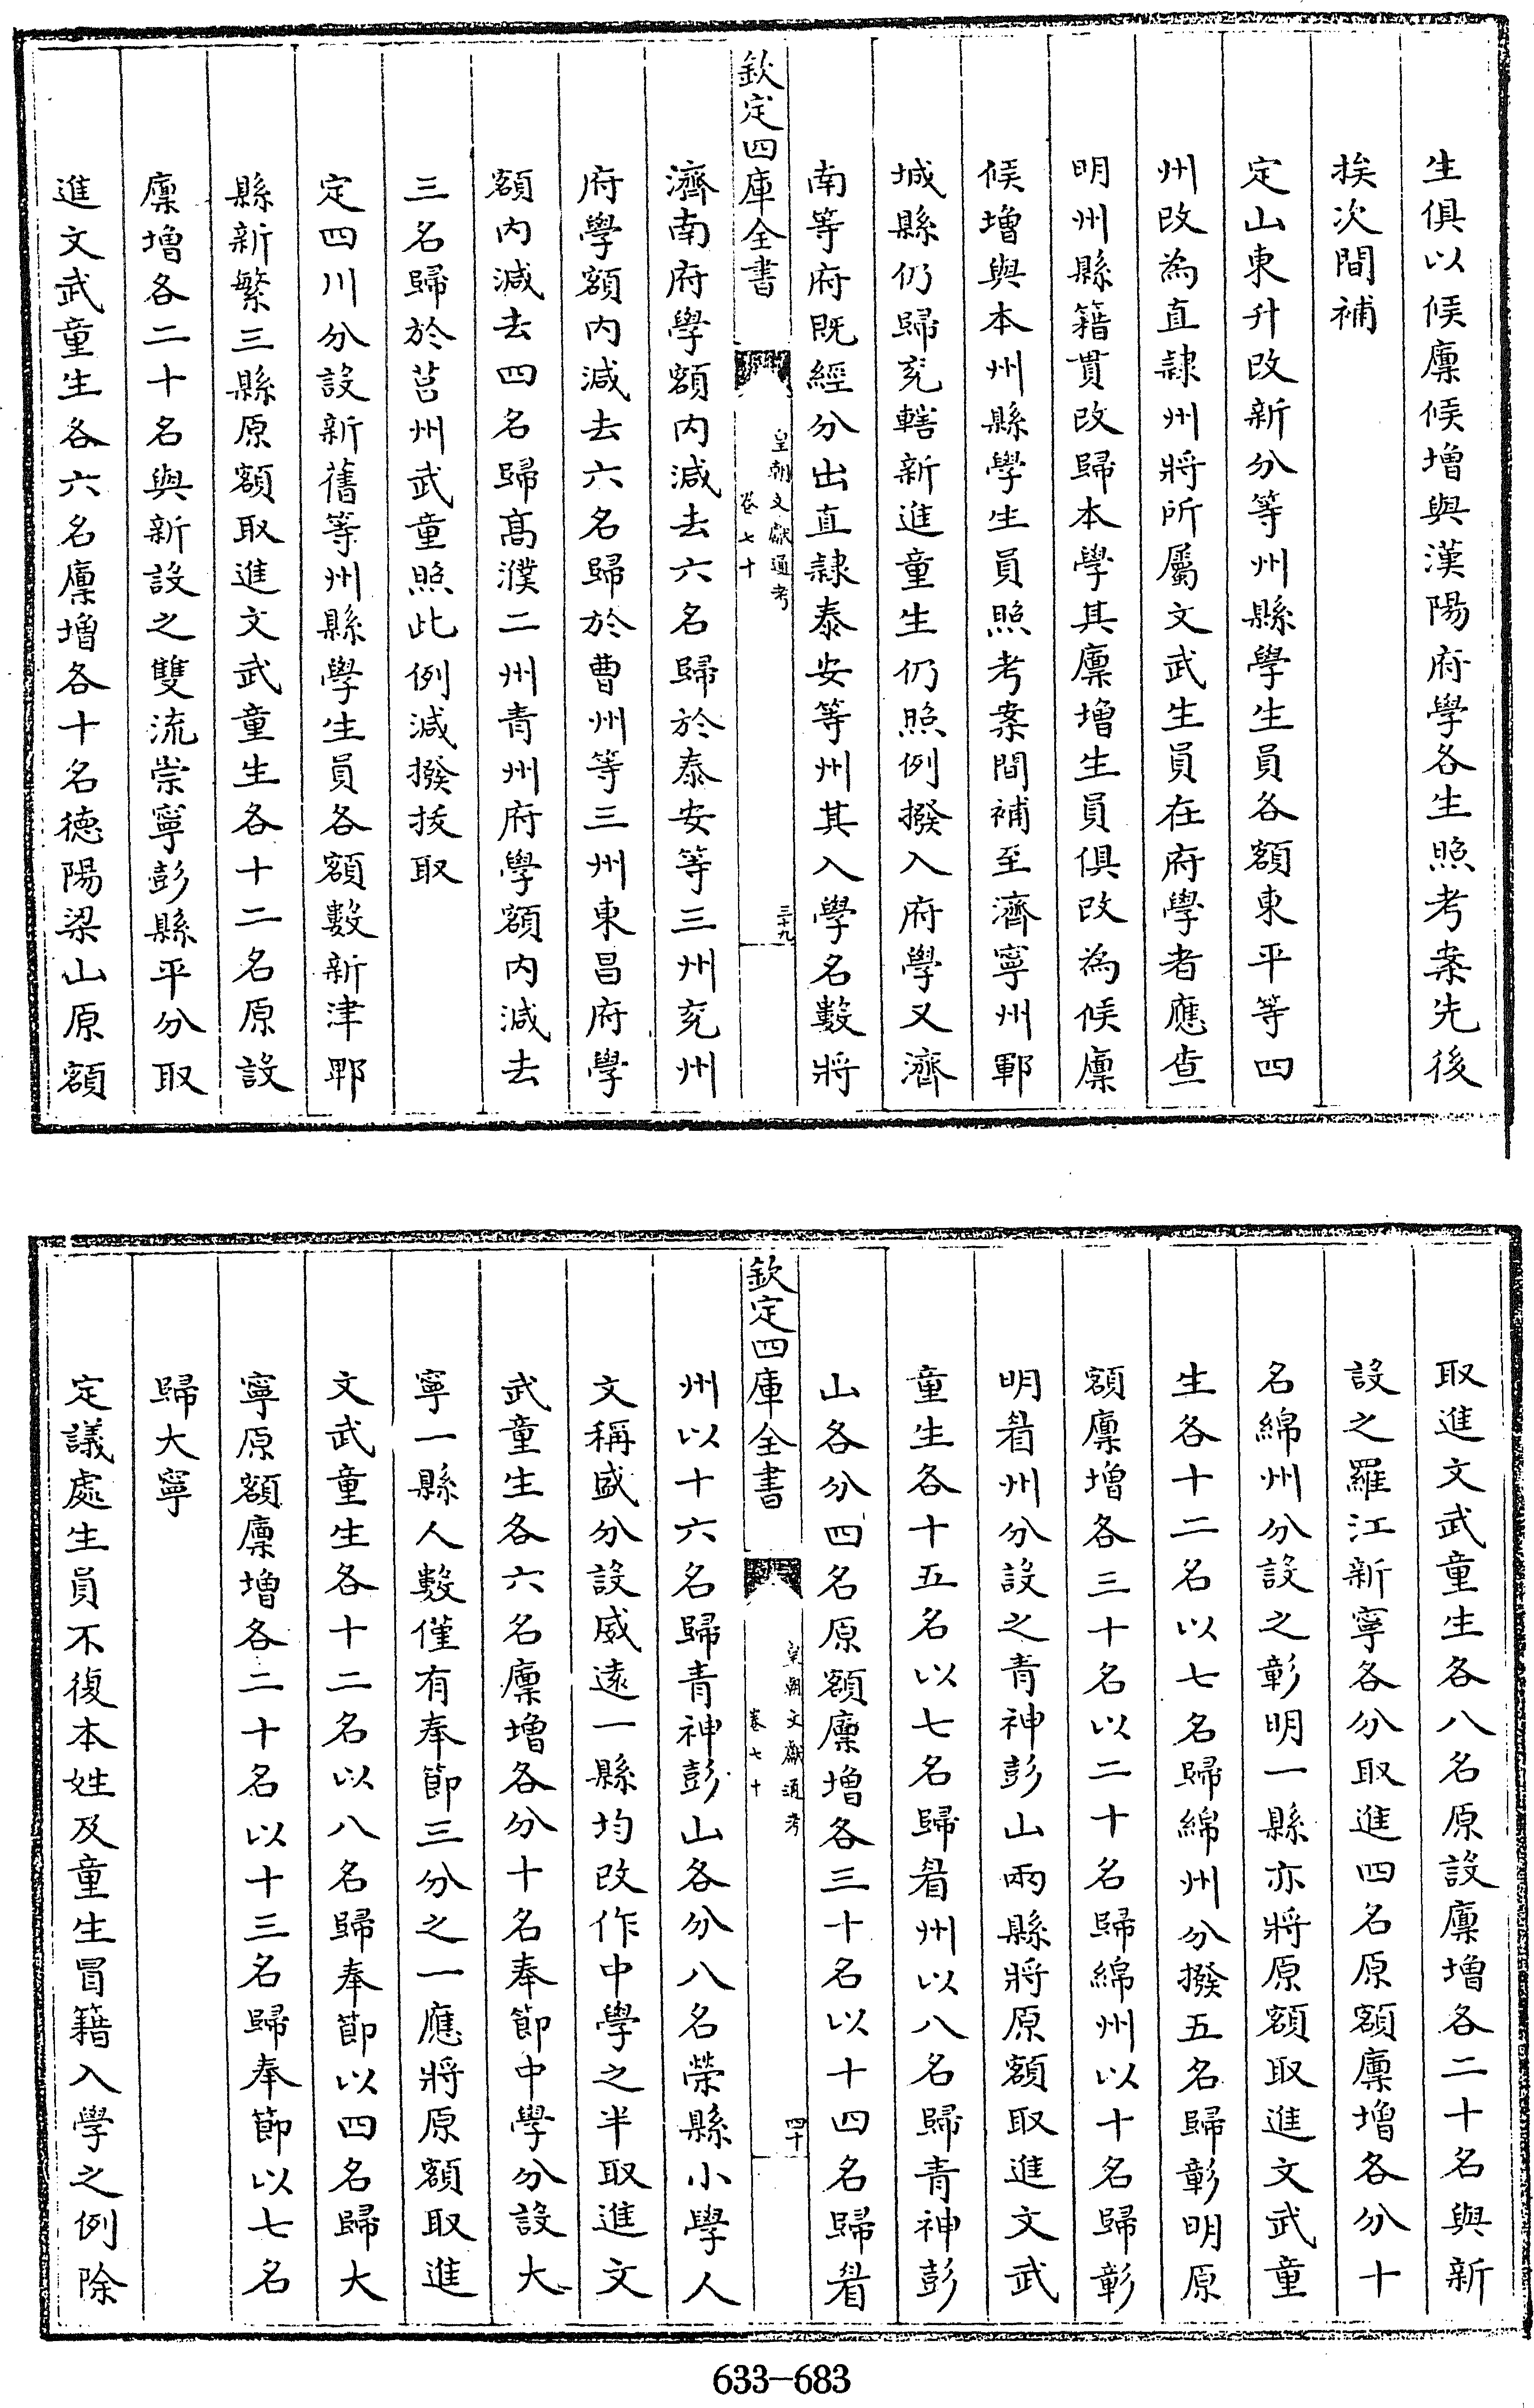 生俱以候廩候增與漢陽府學各生照考案先後
挨次間補
定山東升改新分等州縣學生員各額東平等四
州改為直隸州將所屬文武生員在府學者應查
明州縣籍貫改歸本學其廩增生員俱改為候廩
候增與本州縣學生員照考案間補至濟寧州鄆
城縣仍歸兖轄新進童生仍照例撥入府學又濟
南等府既經分出直隸泰安等州其入學名數將
欽定四庫全書
皇朝文獻通考
卷七十
三十九
濟南府學額内減去六名歸於泰安等三州兖州
府學額内減去六名歸於曹州等三州東昌府學
額内減去四名歸高濮二州青州府學額内減去
三名歸於莒州武童照此例減撥抜取
定四川分設新舊等州縣學生員各額數新津郫
縣新繁三縣原額取進文武童生各十二名原設
廩增各二十名與新設之雙流崇寧彭縣平分取
進文武童生各六名廩增各十名德陽梁山原額
取進文武童生各八名原設廩增各二十名與新
設之羅江新寧各分取進四名原額廩增各分十
名綿州分設之彰明一縣亦將原額取進文武童
生各十二名以七名歸綿州分撥五名歸彰明原
額廩增各三十名以二十名歸綿州以十名歸彰
明眉州分設之青神彭山兩縣將原額取進文武
童生各十五名以七名歸眉州以八名歸青神彭
山各分四名原額廩增各三十名以十四名歸眉
欽定四庫全書
皇朝文獻通考
卷七十
四十
州以十六名歸青神彭山各分八名榮縣小學人
文稱盛分設威遠一縣均改作中學之半取進文
武童生各六名廩增各分十名奉節中學分設大
寧一縣人數僅有奉節三分之一應將原額取進
文武童生各十二名以八名歸奉節以四名歸大
寧原額廩增各二十名以十三名歸奉節以七名
歸大寧
定議處生員不復本姓及童生冒籍入學之例除
633-683